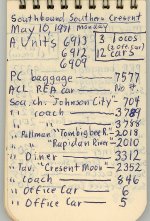 Southbound, Southern Crescent
May 10, 1971 Monday
A Units 6913
6912
6909
3 locos
(2 off car)
12 cars
PC baggage — 7577
ACL REA car — No #.
Sou. ch. "Johnson City" 704
" coach — 3789
" " — 3788
" Pullman "Tombigbee R." 2018
" " "Rapidan River" 2010
" Diner — 3312
" Tav. "Crescent Moon" 2352
" Coach — 846
" Office Car —
" Office Car — 5